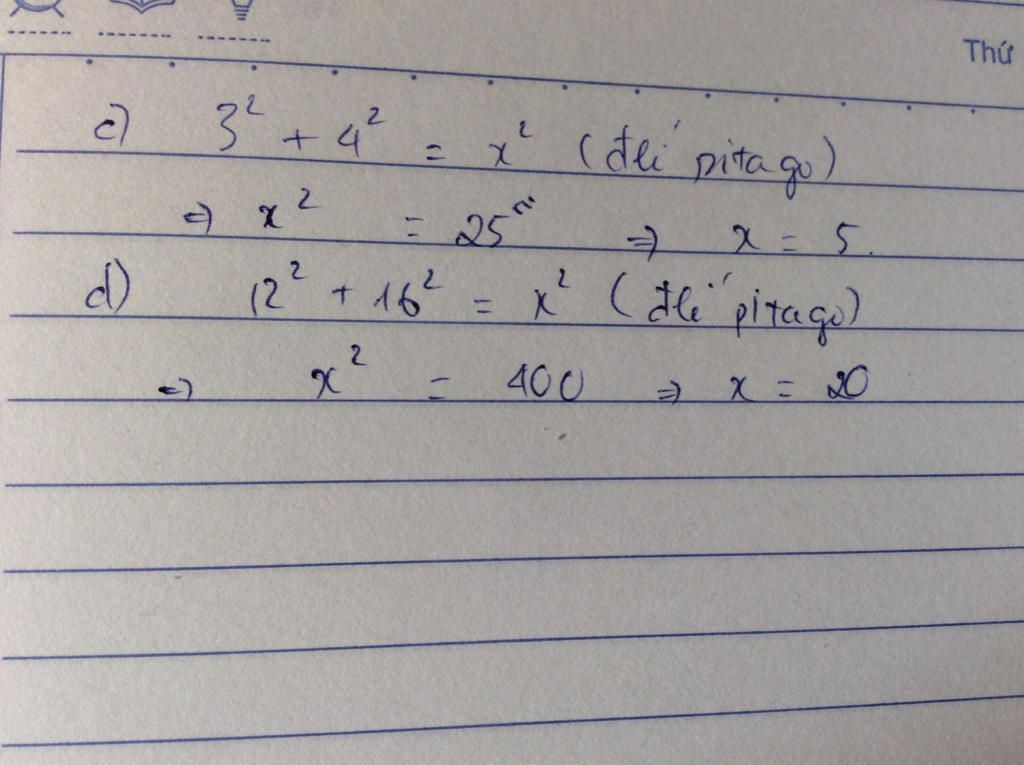 Thứ
c) 3² + 4² = x² (đlí pitago)
=> x² = 25 => x = 5.
d) 12² + 16² = x² (đlí pitago)
=> x² = 400 => x = 20